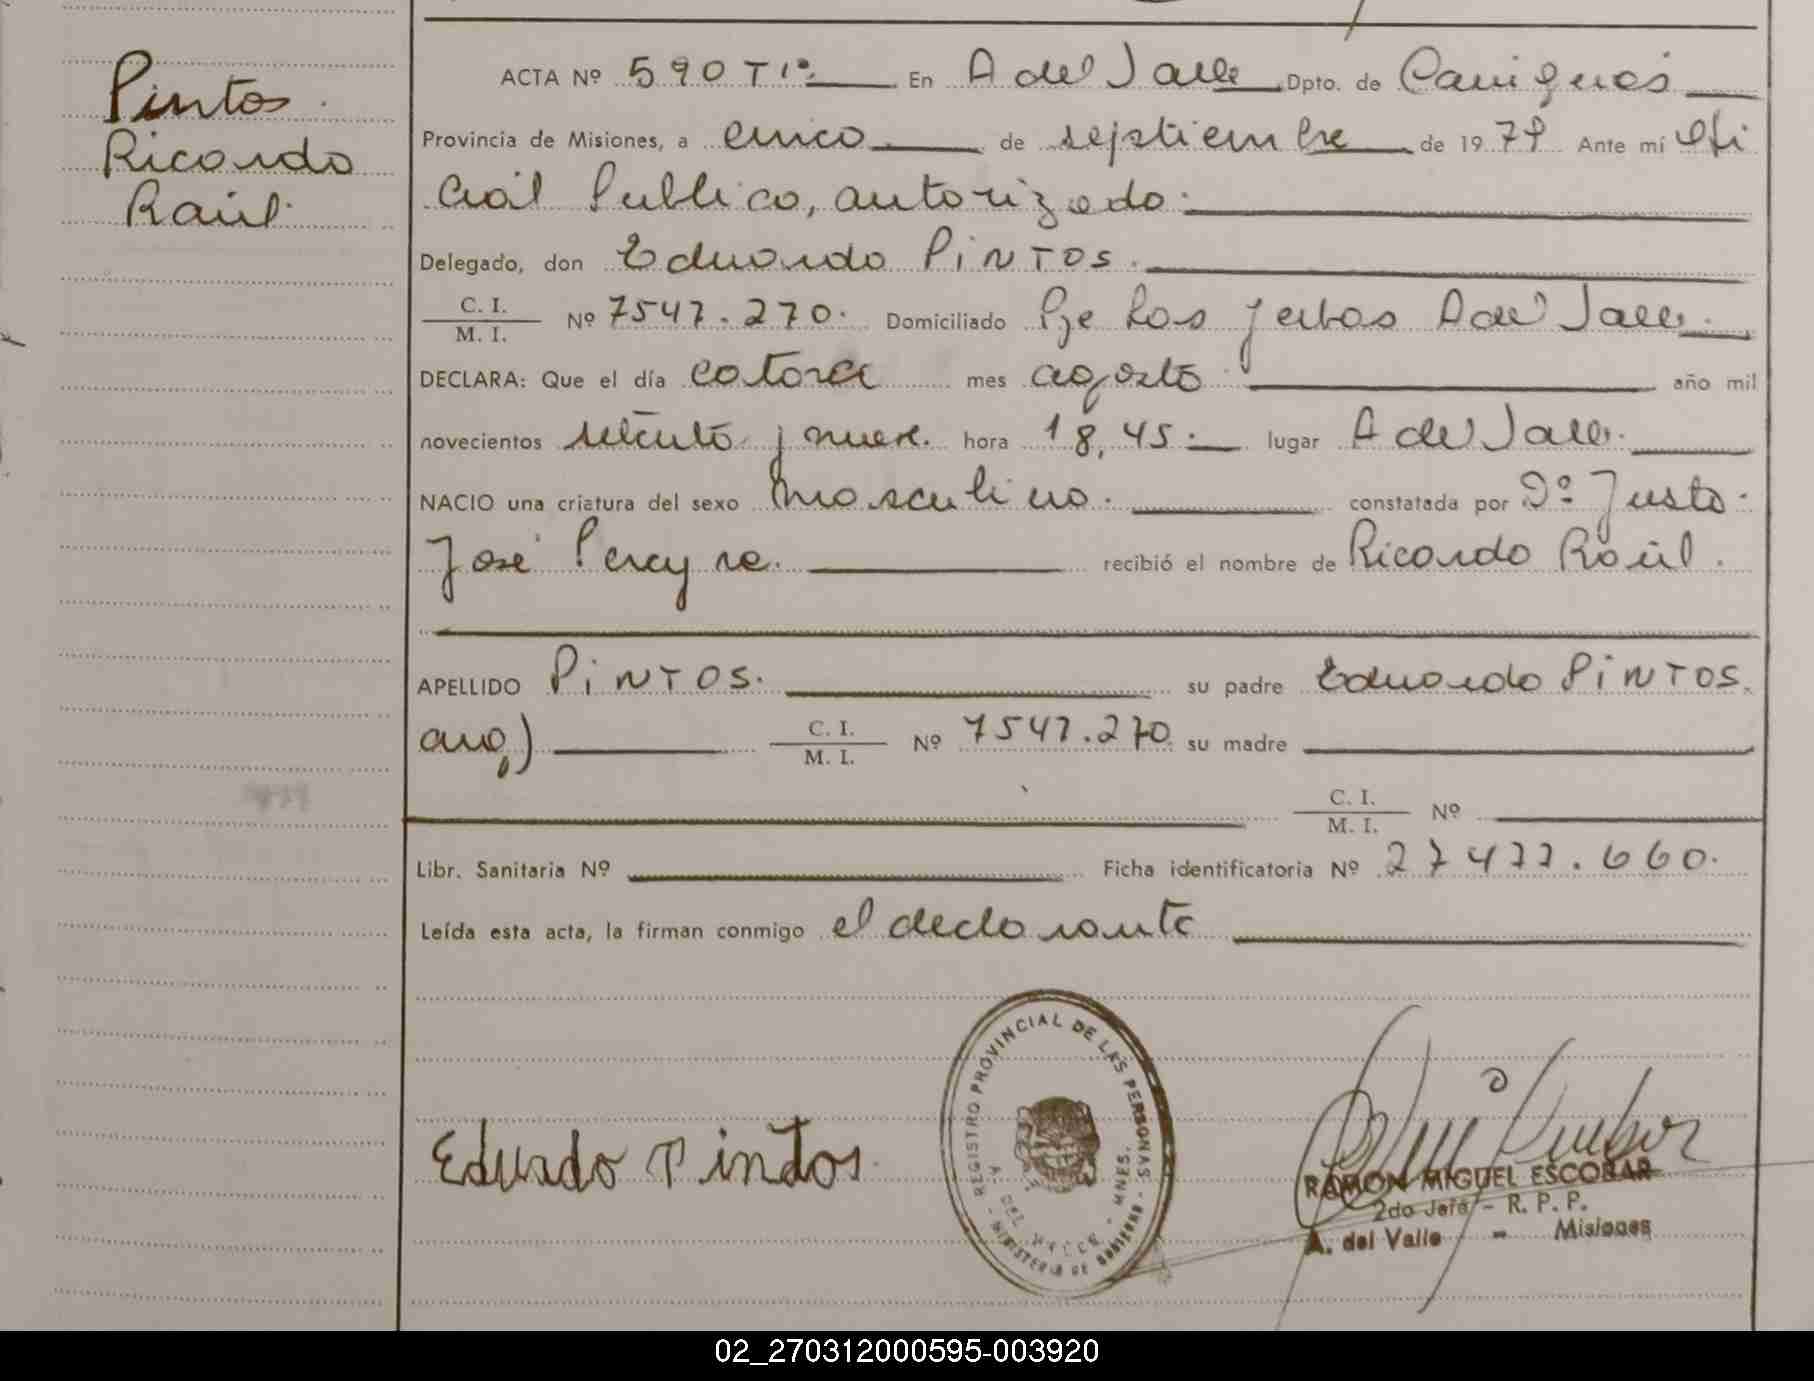 Pintos
Ricardo
Raúl.
ACTA Nº 590 T 1º. En A del Valle Dpto. de Cainguás
Provincia de Misiones, a cinco de septiembre de 1979 Ante mí Ofi
cial Publico, autorizado.
Delegado, don Eduardo PiNTOS.
C. I.
M. I. Nº 7547.270. Domiciliado Pje Los Yerbas A del Valle.
DECLARA: Que el día catorce mes agosto año mil
novecientos setenta y nueve. hora 18,45. lugar A del Valle.
NACIO una criatura del sexo masculino. constatada por Dº. Justo
José Pereyra. recibió el nombre de Ricardo Raúl.
APELLIDO PiNTOS. su padre Eduardo PiNTOS.
arg) C. I.
M. I. Nº 7547.270 su madre
C. I.
M. I. Nº
Libr. Sanitaria Nº Ficha identificatoria Nº 27477.660.
Leída esta acta, la firman conmigo el declarante
Eduardo Pintos
REGISTRO PROVINCIAL DE LAS PERSONAS - MNES.
MINISTERIO DE GOBIERNO
A. DEL VALLE
RAMON MIGUEL ESCOBAR
2do Jefe - R. P. P.
A. del Valle - Misiones
02_270312000595-003920